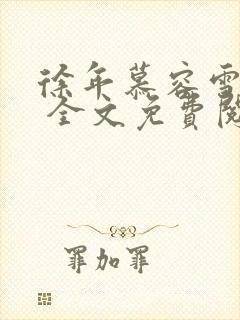 徐年慕容雪
全文免費閱
罪加罪